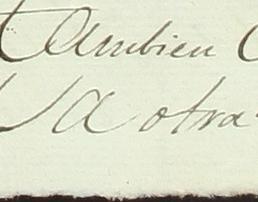 tambien
La otra